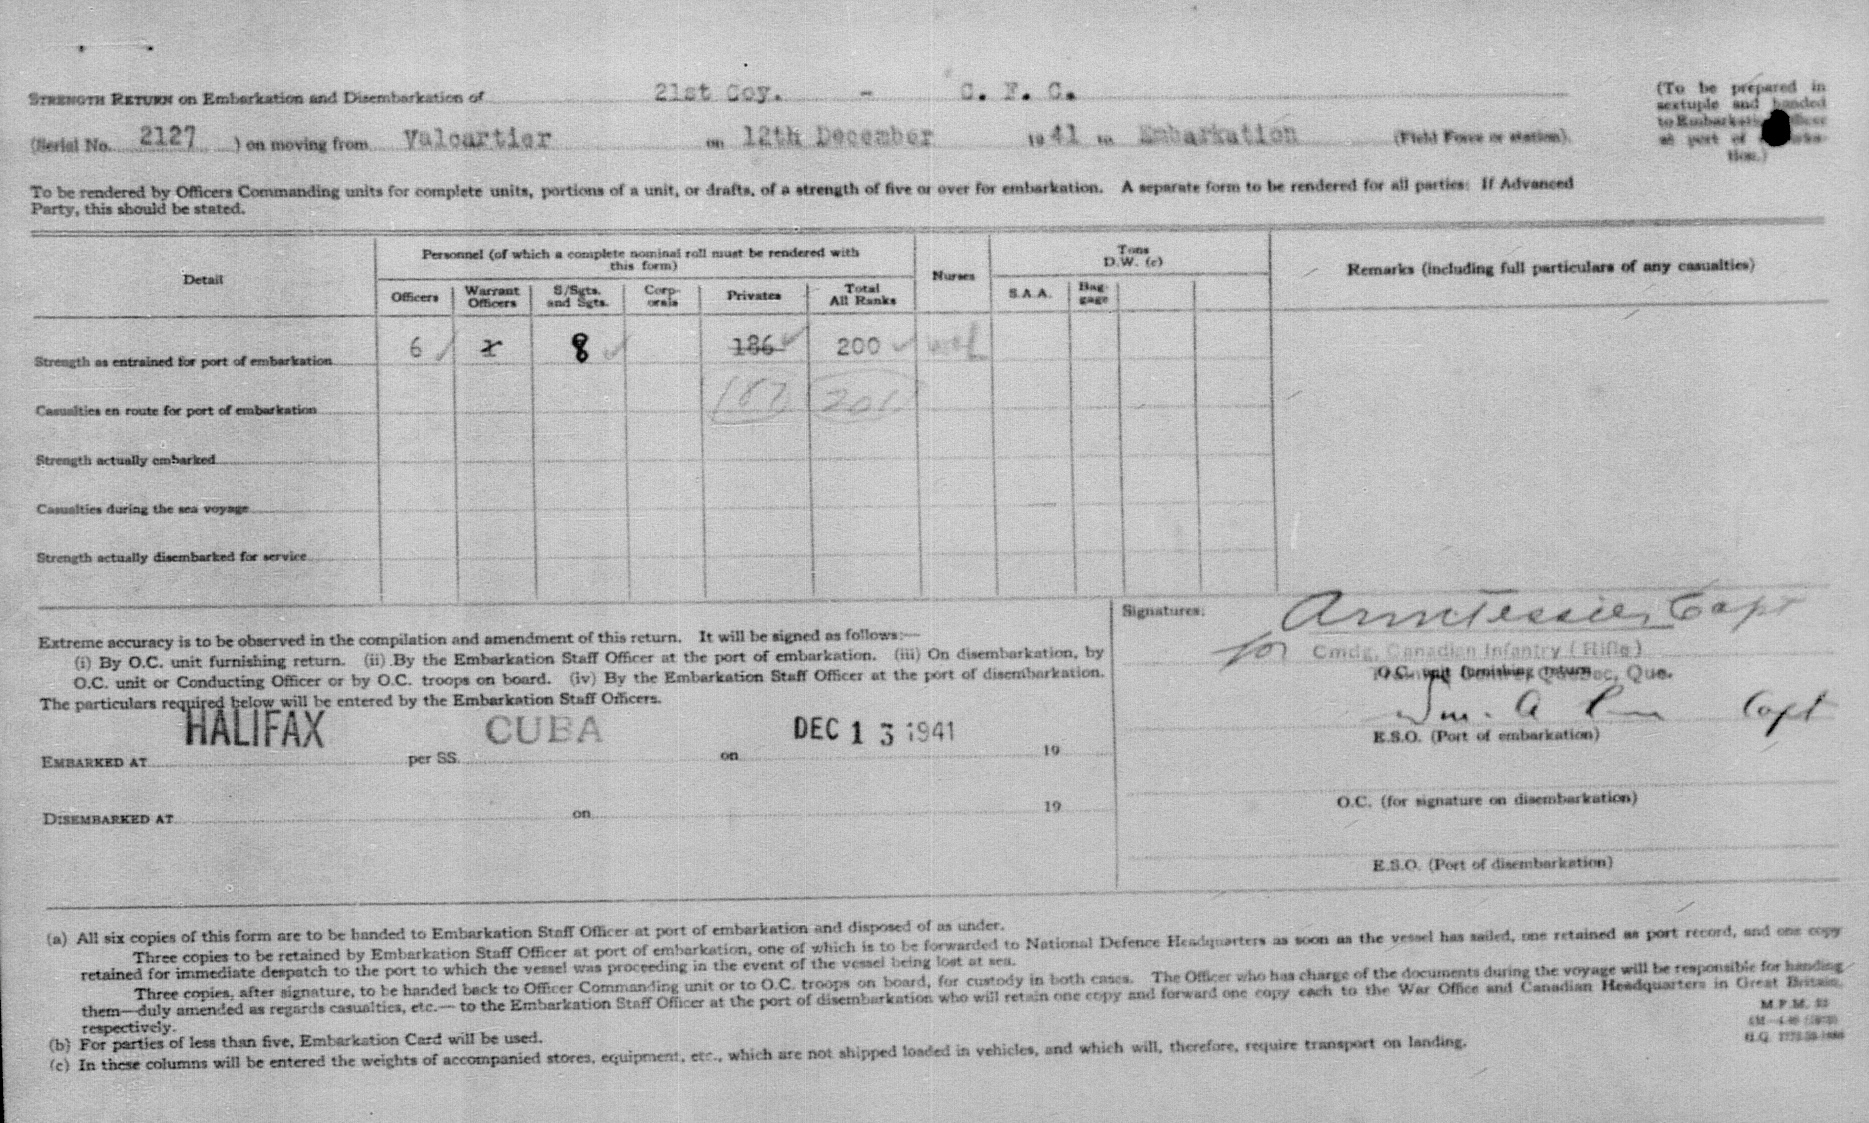 STRENGTH RETURN on Embarkation and Disembarkation of 21st Coy. - C. F. C.
(To be prepared in sextuple and handed to Embarkation Officer at port of
(Serial No. 2127 ) on moving from Valcartier on 12th December 1941 to Embarkation (Field Force or station).
To be rendered by Officers Commanding units for complete units, portions of a unit, or drafts, of a strength of five or over for embarkation. A separate form to be rendered for all parties: If Advanced
Party, this should be stated.
Detail
Personnel (of which a complete nominal roll must be rendered with
this form)
Officers
Warrant Officers
S/Sgts. and Sgts.
Corp-orals
Privates
Total All Ranks
Nurses
Tons
D.W. (c)
S.A.A.
Bag-gage
Remarks (including full particulars of any casualties)
Strength as entrained for port of embarkation 6 8 186 200
187 201
Casualties en route for port of embarkation
Strength actually embarked
Casualties during the sea voyage
Strength actually disembarked for service
Extreme accuracy is to be observed in the compilation and amendment of this return. It will be signed as follows:—
(i) By O.C. unit furnishing return. (ii) By the Embarkation Staff Officer at the port of embarkation. (iii) On disembarkation, by
O.C. unit or Conducting Officer or by O.C. troops on board. (iv) By the Embarkation Staff Officer at the port of disembarkation.
The particulars required below will be entered by the Embarkation Staff Officers.
EMBARKED AT HALIFAX per SS. CUBA on DEC 13 1941 19
DISEMBARKED AT on 19
Signatures:
Tessier Capt
for Cmdg, Canadian Infantry (Rifle)
O.C. unit furnishing return
Quebec, Que.
Wm. A Capt
E.S.O. (Port of embarkation)
O.C. (for signature on disembarkation)
E.S.O. (Port of disembarkation)
(a) All six copies of this form are to be handed to Embarkation Staff Officer at port of embarkation and disposed of as under.
Three copies to be retained by Embarkation Staff Officer at port of embarkation, one of which is to be forwarded to National Defence Headquarters as soon as the vessel has sailed, one retained as port record, and one copy
retained for immediate despatch to the port to which the vessel was proceeding in the event of the vessel being lost at sea.
Three copies, after signature, to be handed back to Officer Commanding unit or to O.C. troops on board, for custody in both cases. The Officer who has charge of the documents during the voyage will be responsible for handing
them—duly amended as regards casualties, etc.— to the Embarkation Staff Officer at the port of disembarkation who will retain one copy and forward one copy each to the War Office and Canadian Headquarters in Great Britain,
respectively.
(b) For parties of less than five, Embarkation Card will be used.
(c) In these columns will be entered the weights of accompanied stores, equipment, etc., which are not shipped loaded in vehicles, and which will, therefore, require transport on landing.
M.F.M.
H.Q.